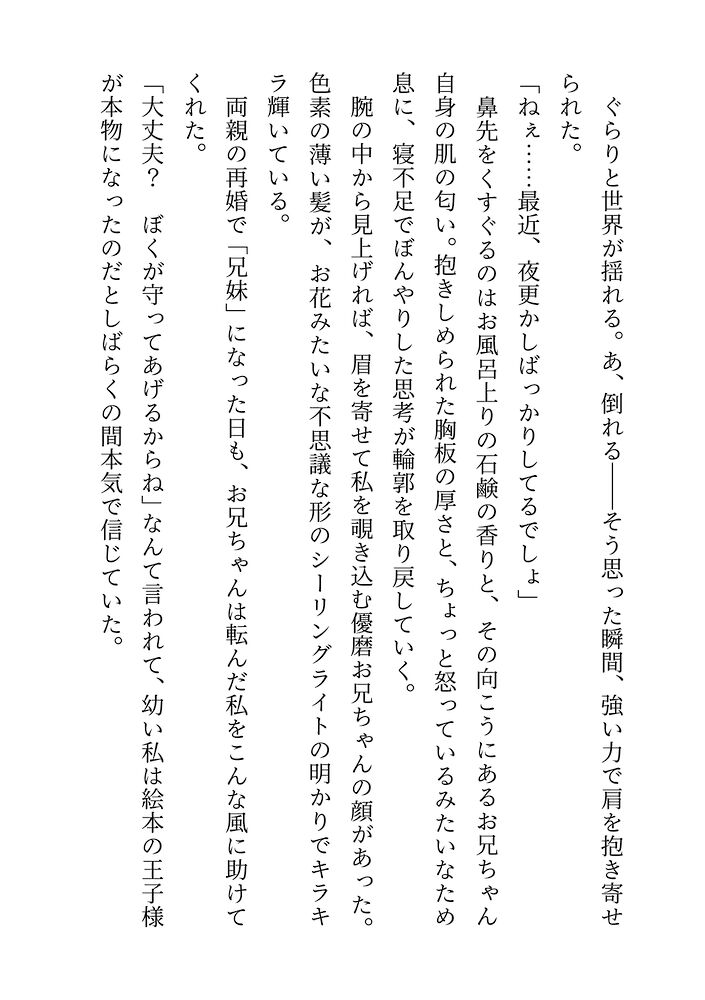 ぐらりと世界が揺れる。あ、倒れる――そう思った瞬間、強い力で肩を抱き寄せ
られた。
「ねぇ……最近、夜更かしばっかりしてるでしょ」
　鼻先をくすぐるのはお風呂上りの石鹸の香りと、その向こうにあるお兄ちゃん
自身の肌の匂い。抱きしめられた胸板の厚さと、ちょっと怒っているみたいなため
息に、寝不足でぼんやりした思考が輪郭を取り戻していく。
　腕の中から見上げれば、眉を寄せて私を覗き込む優磨お兄ちゃんの顔があった。
色素の薄い髪が、お花みたいな不思議な形のシーリングライトの明かりでキラキ
ラ輝いている。
　両親の再婚で「兄妹」になった日も、お兄ちゃんは転んだ私をこんな風に助けて
くれた。
「大丈夫？　ぼくが守ってあげるからね」なんて言われて、幼い私は絵本の王子様
が本物になったのだとしばらくの間本気で信じていた。